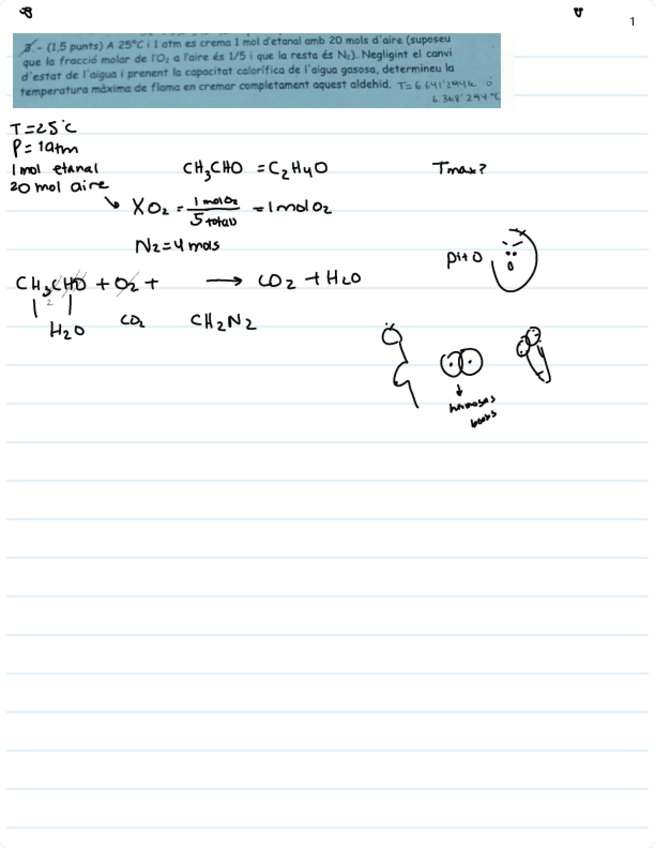 1
3.- (1,5 punts) A 25°C i 1 atm es crema 1 mol d'etanal amb 20 mols d'aire (suposeu
que la fracció molar de l'O₂ a l'aire és 1/5 i que la resta és N₂). Negligint el canvi
d'estat de l'aigua i prenent la capacitat calorífica de l'aigua gasosa, determineu la
temperatura màxima de flama en cremar completament aquest aldehid. T=6.641'294K ó
6.368'294°C
T=25°C
P=1atm
1mol etanal
CH₃CHO = C₂H₄O
Tmax?
20 mol aire
XO₂ = 1 mol O₂ / 5 totals = 1 mol O₂
N₂=4 mols
pito
CH₃CHO + O₂ + → CO₂ + H₂O
2
H₂O
CO₂
CH₂N₂